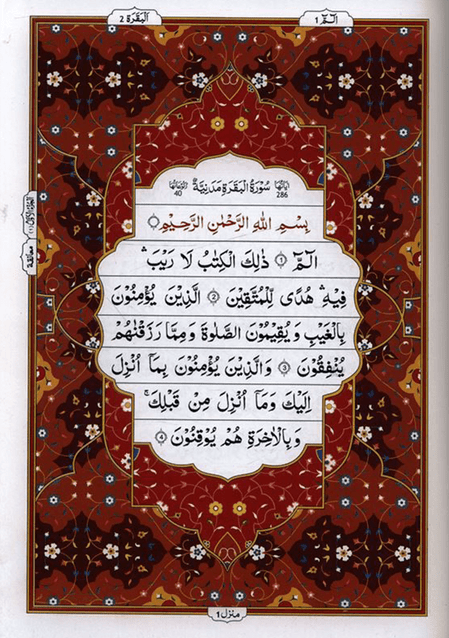 الٓمّٓ ١
اَلْبَقَرَة ٢
سُوْرَةُ الْبَقَرَةِ مَدَنِيَّةٌ
اٰيَاتُهَا 286
رُكُوْعَاتُهَا 40
بِسْمِ اللّٰهِ الرَّحْمٰنِ الرَّحِيْمِ
الٓمّٓ ۚ ﴿١﴾ ذٰلِكَ الْكِتٰبُ لَا رَيْبَ ۛ
فِيْهِ ۛ هُدًى لِّلْمُتَّقِيْنَ ﴿٢﴾ الَّذِيْنَ يُؤْمِنُوْنَ
بِالْغَيْبِ وَ يُقِيْمُوْنَ الصَّلٰوةَ وَ مِمَّا رَزَقْنٰهُمْ
يُنْفِقُوْنَ ﴿٣﴾ وَ الَّذِيْنَ يُؤْمِنُوْنَ بِمَاۤ اُنْزِلَ
اِلَيْكَ وَ مَاۤ اُنْزِلَ مِنْ قَبْلِكَ ۚ
وَ بِالْاٰخِرَةِ هُمْ يُوْقِنُوْنَ ﴿٤﴾
مَنْزِل ١